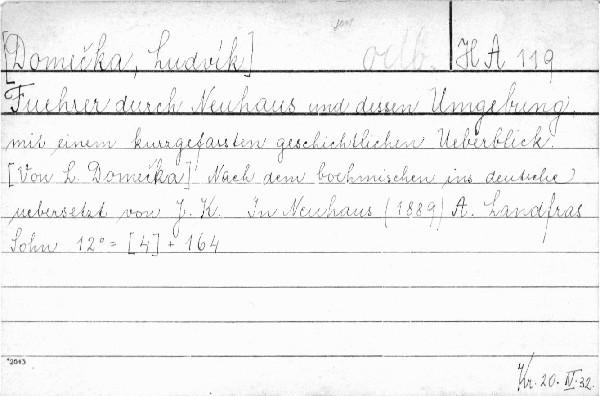 [Domečka, Ludvík] odb. H A 119
Fuehrer durch Neuhaus und dessen Umgebung,
mit einem kurzgefassten geschichtlichen Ueberblick.
[Von L. Domečka] Nach dem boehmischen ins deutsche
uebersetzt von J. K. In Neuhaus (1889) A. Landfras
Sohn 12° = [4] + 164
*2643
Kr. 20. IV. 32.